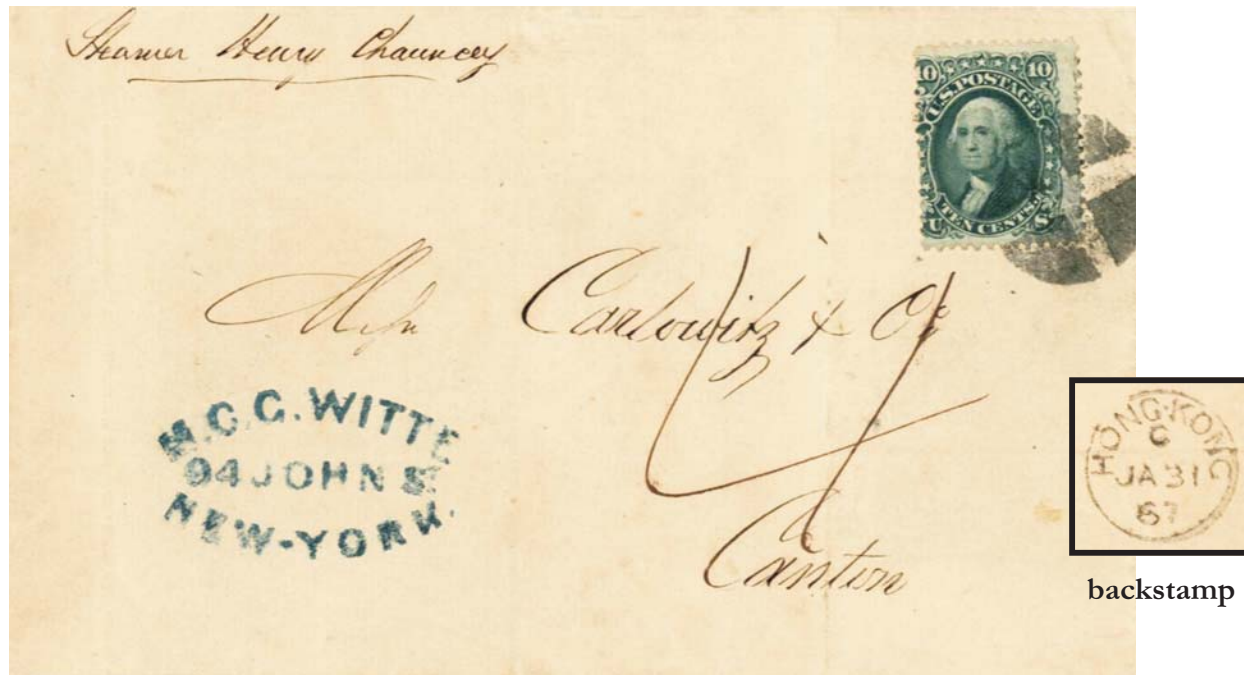 Steamer Henry Chauncey
10 10
U.S. POSTAGE
TEN CENTS.
U S.
Carlowitz & Co
4
M.C.C. WITTE
94 JOHN S.
NEW-YORK.
Canton
HONG-KONG
C
JA 31
67
backstamp